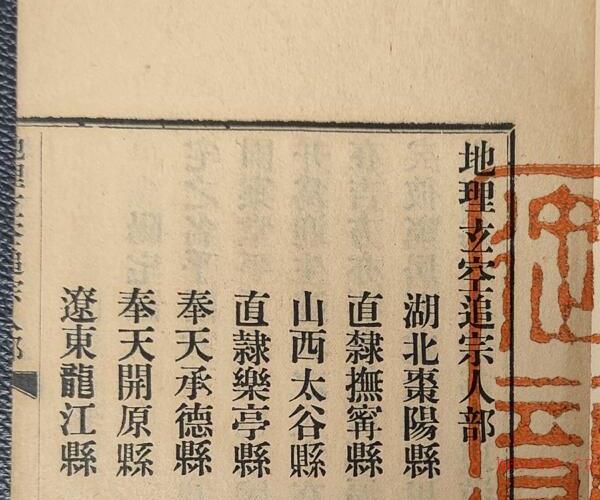 地理玄空追宗人部
湖北棗陽縣
直隸撫甯縣
山西太谷縣
直隸樂亭縣
奉天承德縣
奉天開原縣
遼東龍江縣